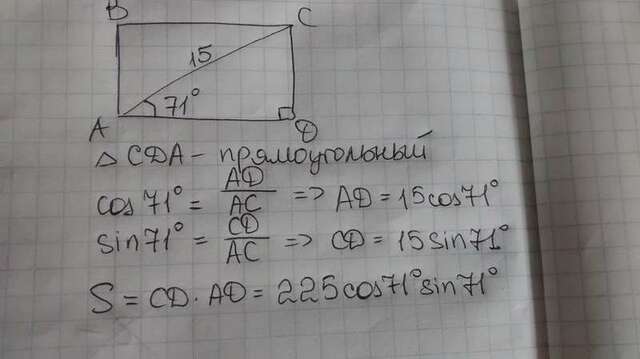 B C
15
71°
A D
△ CDA – прямоугольный
cos 71° = AD/AC => AD = 15cos71°
sin 71° = CD/AC => CD = 15sin71°
S = CD · AD = 225cos71°sin71°